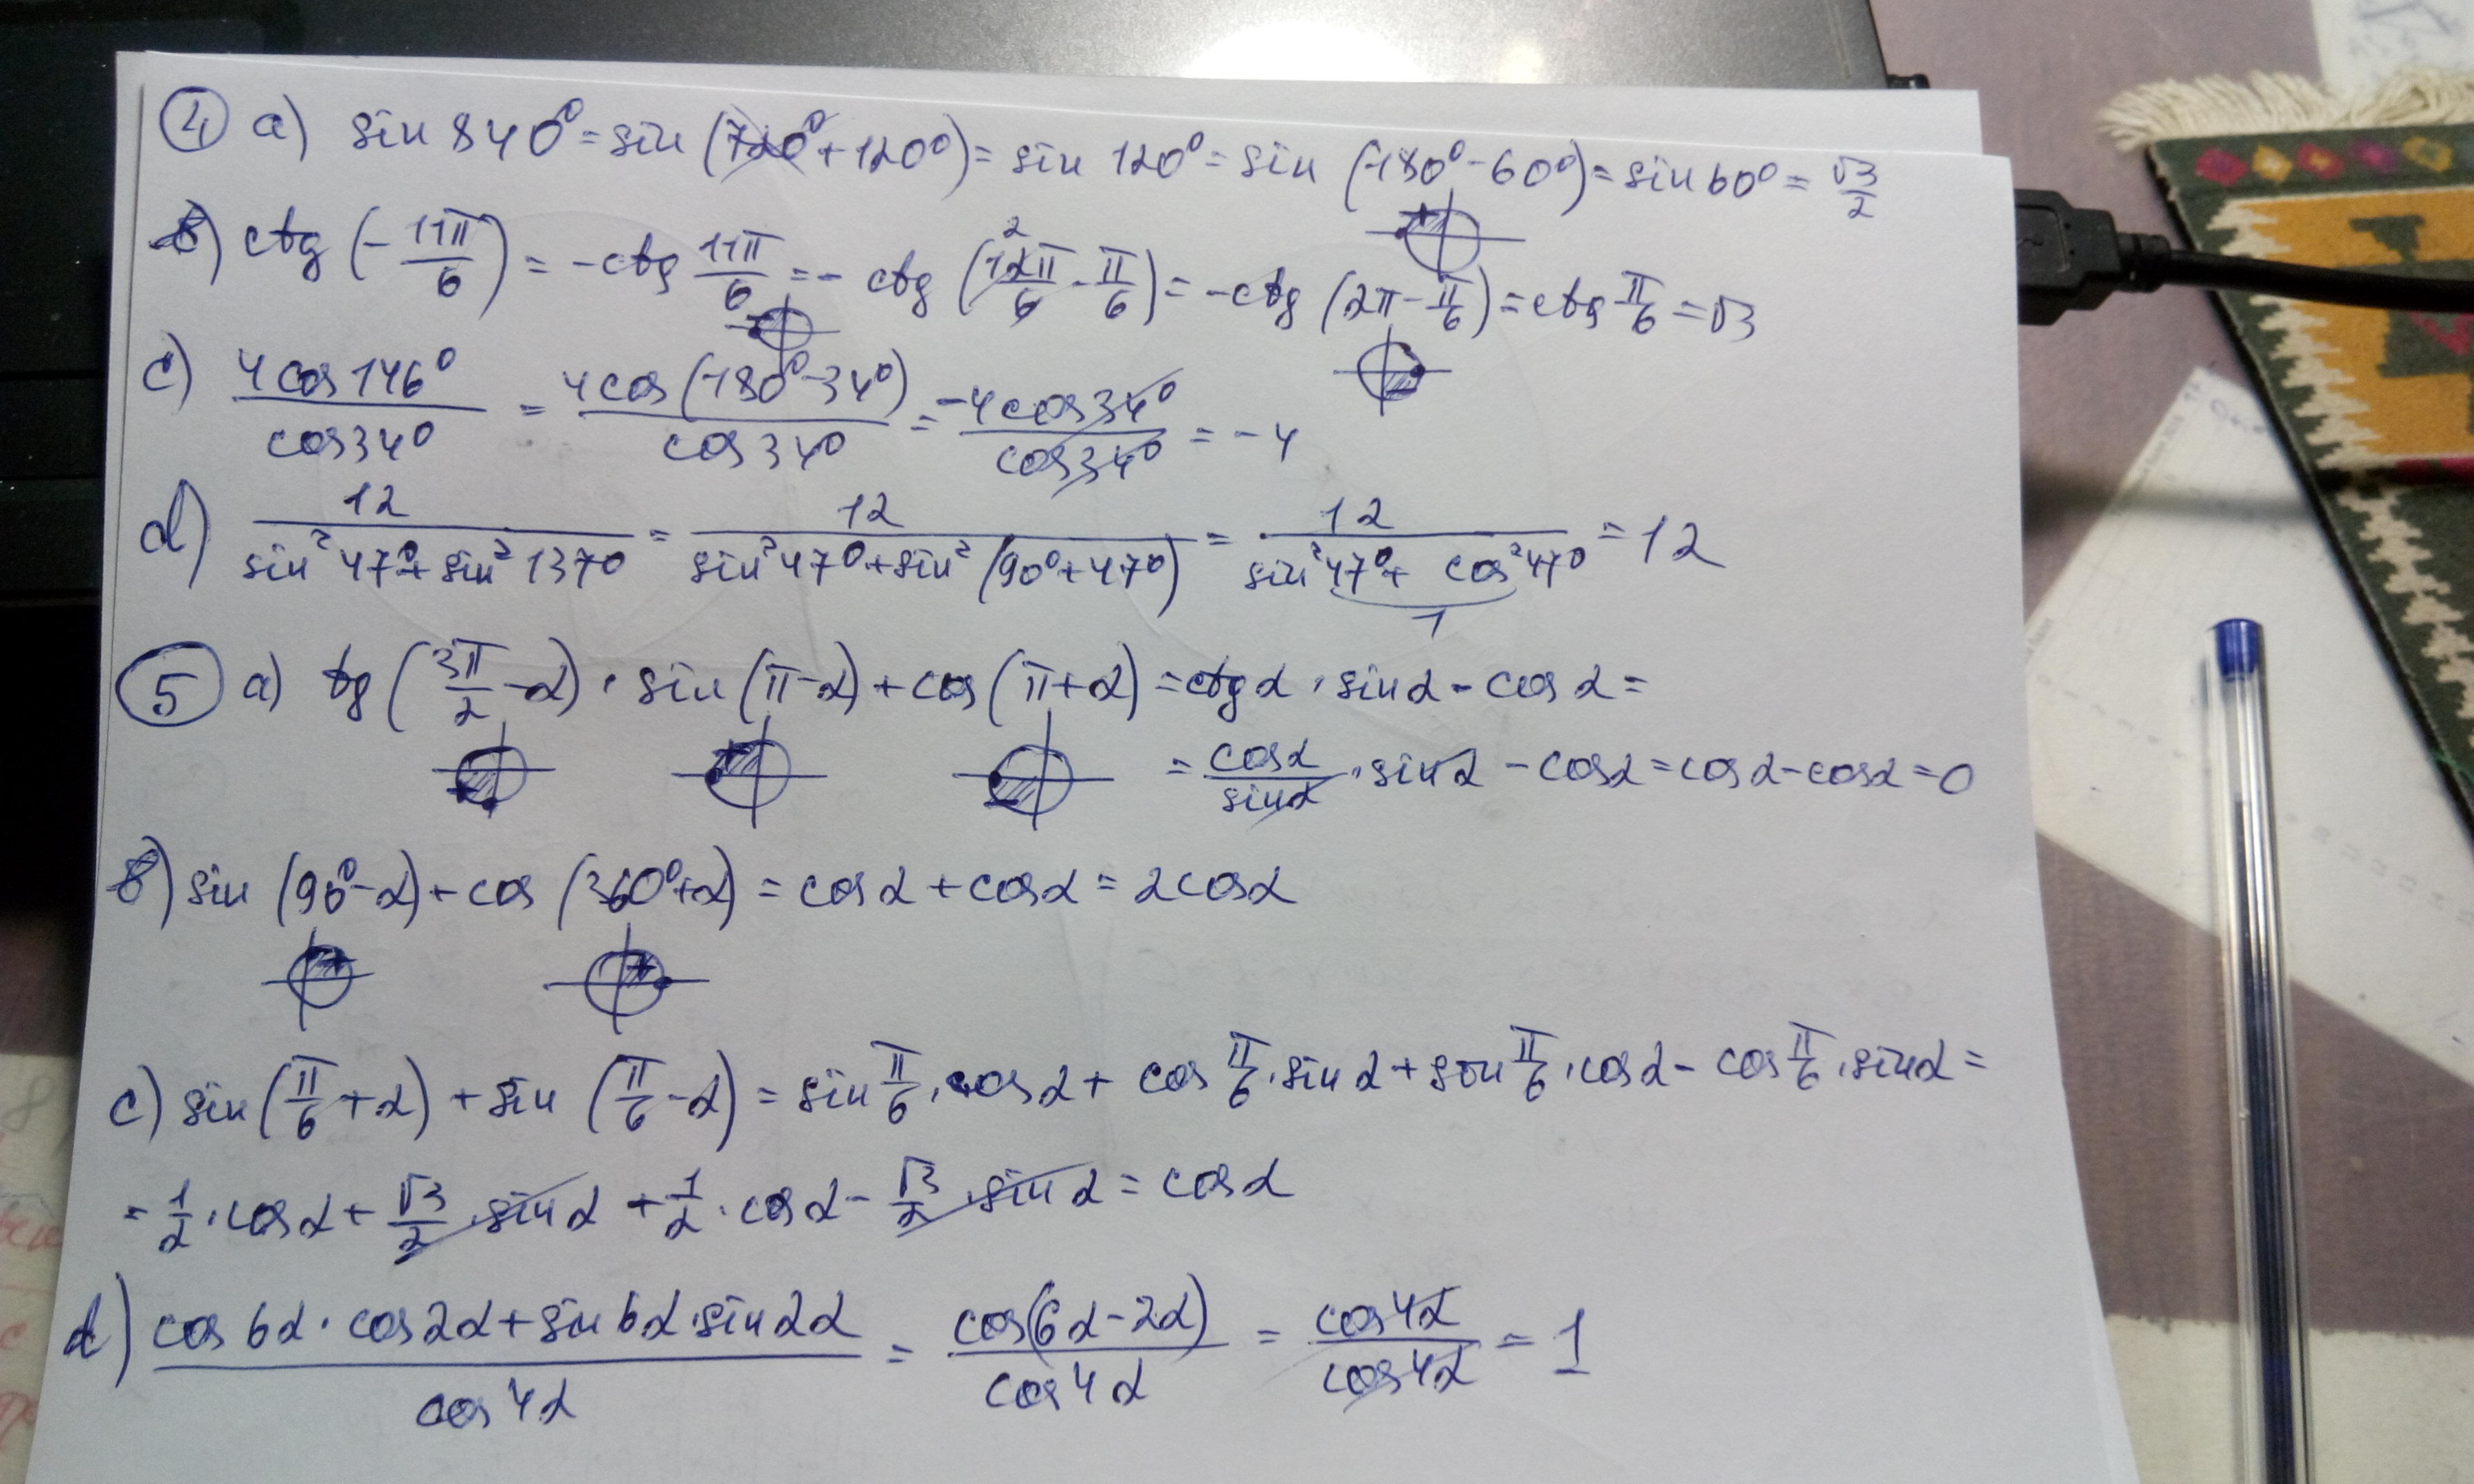 ④ a) sin 840° = sin (720° + 120°) = sin 120° = sin (180° - 60°) = sin 60° = √3/2
b) ctg (- 11π/6) = - ctg 11π/6 = - ctg (12π/6 - π/6) = - ctg (2π - π/6) = ctg π/6 = √3
c) 4cos146°/cos34° = 4cos(180° - 34°)/cos34° = -4cos34°/cos34° = -4
d) 12/(sin² 47° + sin² 137°) = 12/(sin² 47° + sin² (90° + 47°)) = 12/(sin² 47° + cos² 47°) = 12
1
⑤ a) tg (3π/2 - α) · sin (π - α) + cos (π + α) = ctg α · sin α - cos α =
= cosα/sinα · sin α - cos α = cos α - cos α = 0
b) sin (90° - α) + cos (360° + α) = cos α + cos α = 2cos α
c) sin (π/6 + α) + sin (π/6 - α) = sin π/6 · cos α + cos π/6 · sin α + sin π/6 · cos α - cos π/6 · sin α =
= 1/2 · cos α + √3/2 · sin α + 1/2 · cos α - √3/2 · sin α = cos α
d) (cos 6α · cos 2α + sin 6α · sin 2α)/cos 4α = cos(6α - 2α)/cos 4α = cos 4α/cos 4α = 1